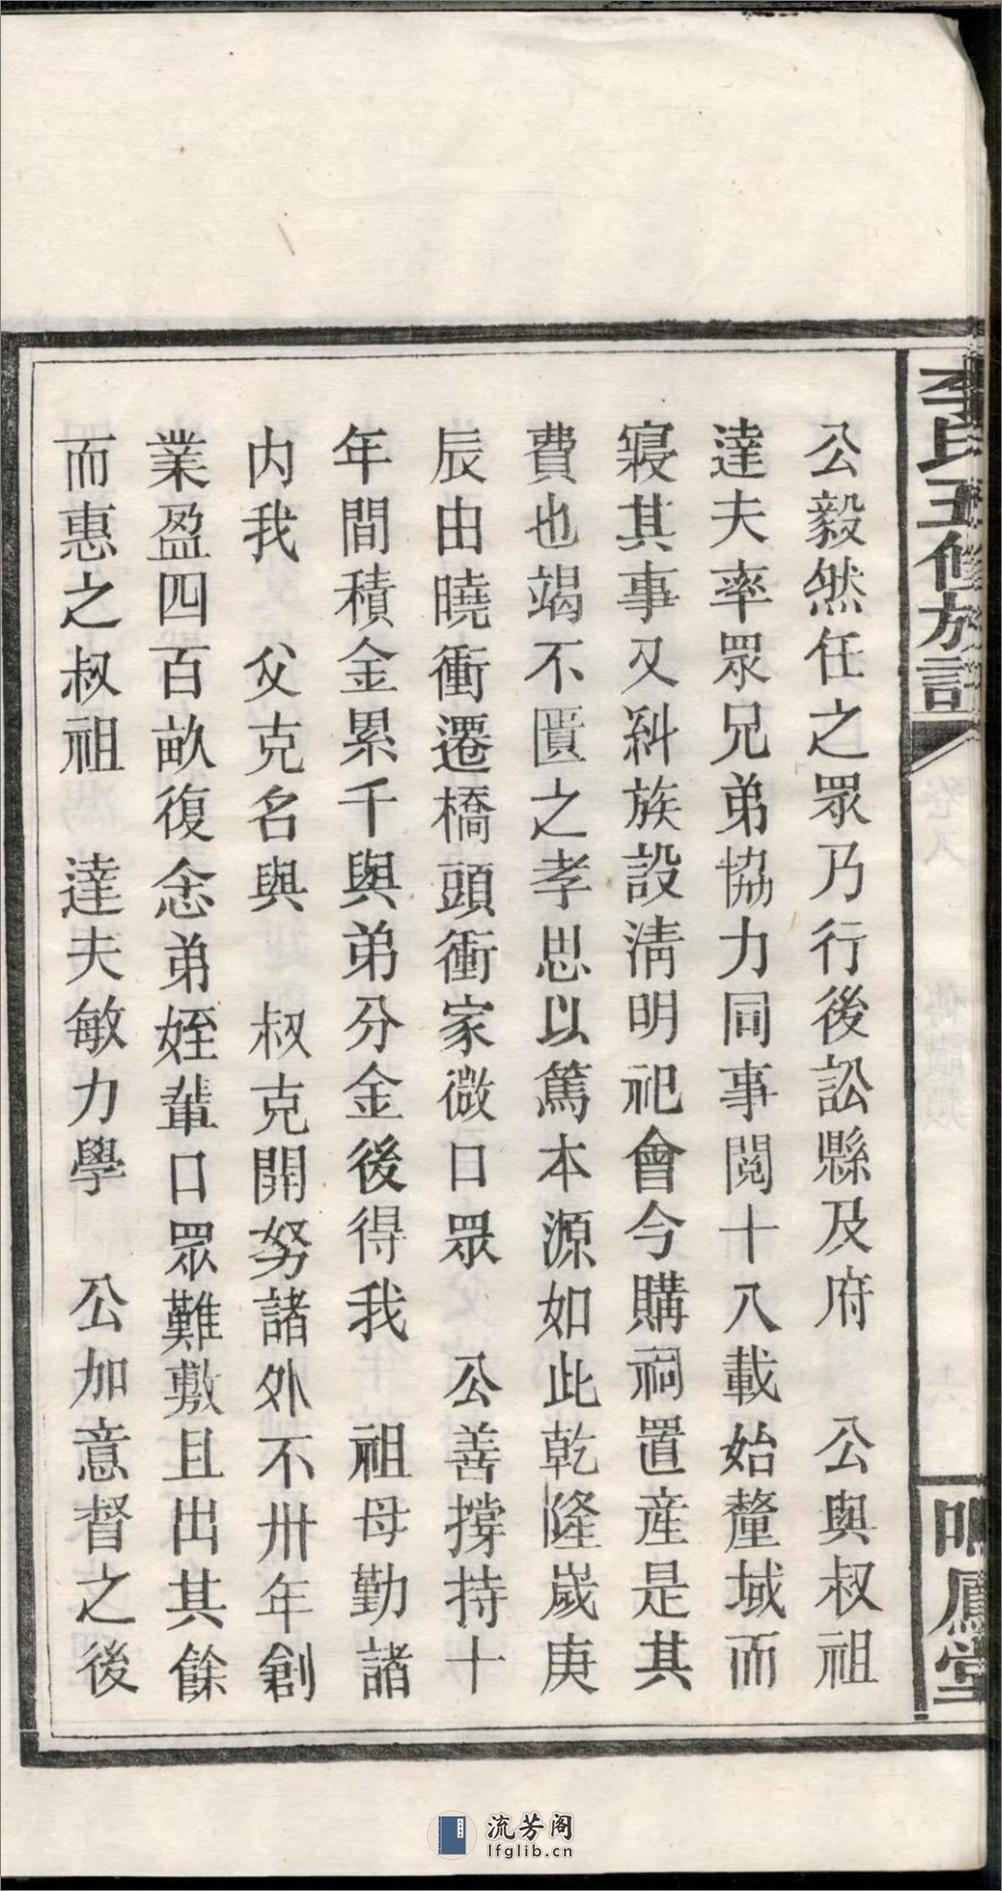 李氏五修族譜
鳴鳳堂
公毅然任之眾乃行後訟縣及府　公與叔祖
達夫率眾兄弟協力同事閱十八載始釐域而
寢其事又糾族設清明祀會今購祠置産是其
費也竭不匱之孝思以篤本源如此乾隆歲庚
辰由曉衝遷橋頭衝家微口眾　公善撐持十
年間積金累千與弟分金後得我　祖母勤諸
内我　父克名與　叔克開努諸外不卅年創
業盈四百畝復念弟姪輩口眾難敷且出其餘
而惠之叔祖　達夫敏力學　公加意督之後
流芳阁
lfglib.cn